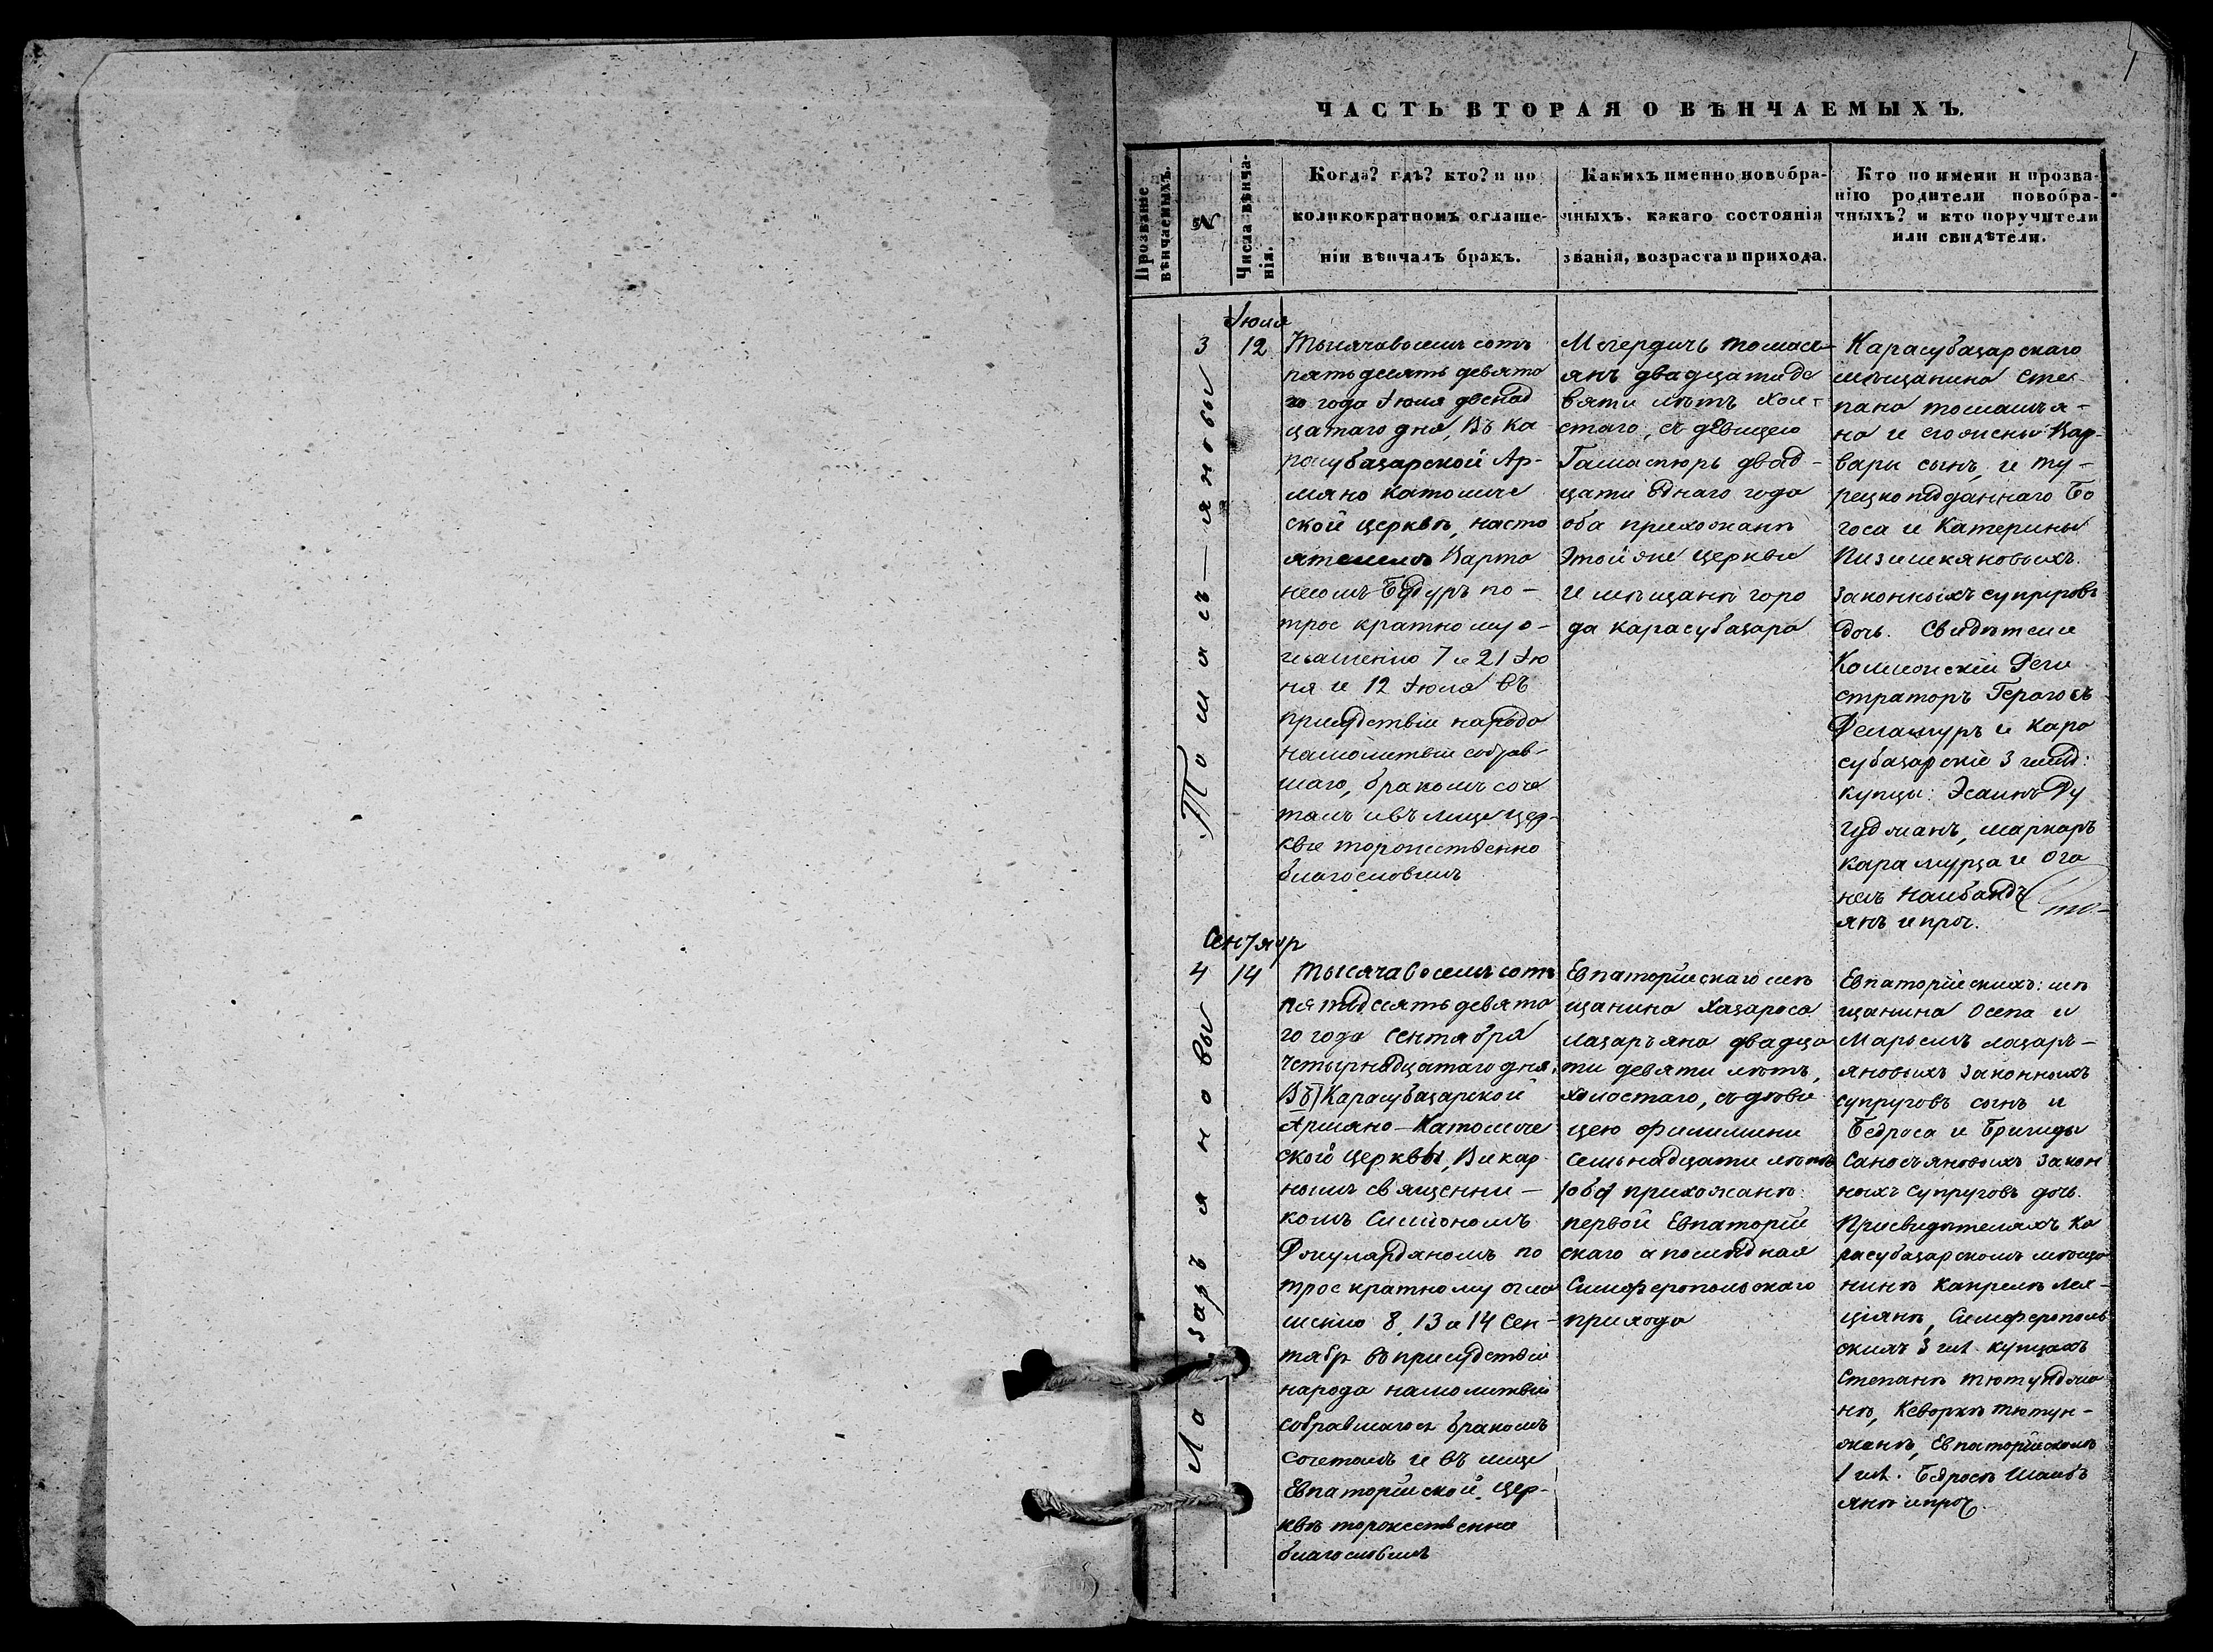 ЧАСТЬ ВТОРАЯ О ВѢНЧАЕМЫХЪ.
Прозваніе
вѣнчаемыхъ.
№
Числа вѣнча-
нія.
Когда? гдѣ? кто? и по
коликократномъ оглаше-
ніи вѣнчалъ бракъ.
Какихъ именно новобра-
чныхъ, какаго состоянія
званія, возраста и прихода.
Кто по имени и прозва-
нію родители новобра-
чныхъ? и кто поручители
или свидѣтели.
Томасъ-яновы
3
Іюля
12
Тысяча восемь сотъ
пятьдесятъ девято
го года Іюля двенад
цатаго дня, Въ Ка
расубазарской Ар-
мяно Католиче
ской церквѣ, насто
ятелемъ Варто
несомъ Бдуръ по-
трое кратному о-
глашенію 7 и 21 Ію
ня и 12 Іюля въ
присудствіи народа
на молитвы собрав-
шаго, бракомъ соче
талъ и въ лице цер-
кви торжественно
благословилъ
Мегердичъ Томась-
янъ двадцати де
вяти лѣтъ хол-
стаго, съ дѣвицею
Гамаспюръ двад-
цати однаго года
оба прихожанѣ
этой же церкви
и мѣщанѣ горо
да Карасубазара
Карасубазарскаго
мѣщанина Сте-
пана Томасъя-
на и его жены Вар-
вары сынъ, и ту-
рецко подданнаго Бо
госа и Катерины
Пизишкяновыхъ
законныхъ супруговъ
дочь. Свидѣтели
Коллежскій Реги
страторъ Герагосъ
и Кара
субазарскіе 3 гильд:
купцы:
Маркаръ
Карамурза и Ога
несъ Налбандъ
янъ и проч.
Лазаръяновы
4
Сентябр
14
Тысяча восемь сотъ
пятьдесятъ девято
го года Сентября
четырнадцатаго дня,
Въ Карасубазарской
Армяно-Католиче
ской церквы, Викар
нымъ священни-
комъ Симіономъ
по
трое кратному огла
шенію 8, 13 и 14 Сен-
тябр въ присудствіи
народа на молитвы
собравшагося бракомъ
сочеталъ и въ лице
Евпаторійской цер-
квѣ торжественна
благословилъ
Евпаторійскаго мѣ
щанина Хазароса
Лазаръяна двадца
ти девяти лѣтъ,
холостаго, съ дѣви
цею Филимини
семьнадцати лѣтъ
оба прихожанѣ:
первой Евпаторій
скаго а послѣдная
Симферопольскаго
прихода
Евпаторійскихъ: мѣ
щанина Осепа и
Марьемъ Лазаръ-
яновыхъ законныхъ
супруговъ сынъ и
Бедроса и Бригиды
Саносъяновыхъ закон
ныхъ супруговъ дочь.
При свидѣтеляхъ Ка
расубазарскомъ мѣща
нинѣ Капрелѣ Лея-
ціянѣ, Симферополь
скихъ 3 гил. купцахъ
Степанѣ Тютунджа
нѣ, Кеворкѣ Тютун-
жанѣ, Евпаторійскомъ
1 гил. Бедросѣ Шаибъ
янѣ и проч.